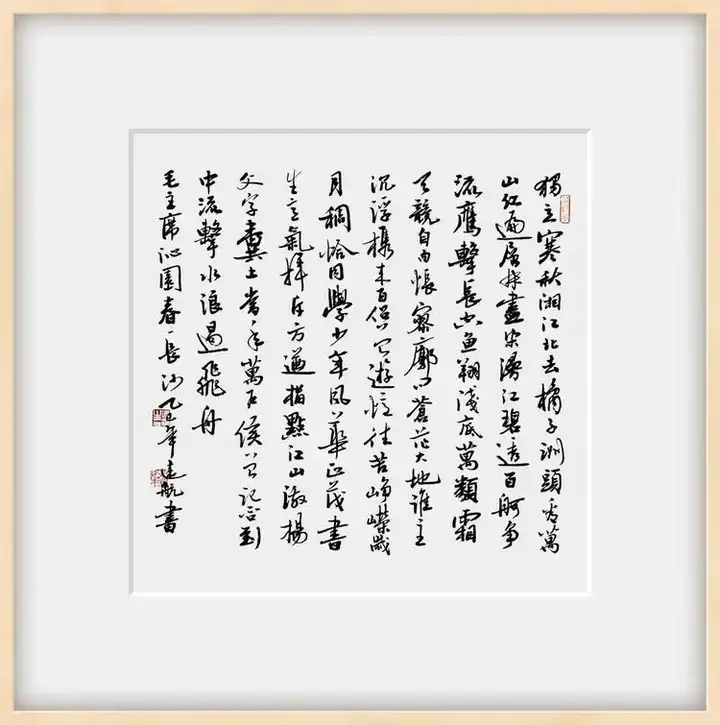 獨立寒秋湘江北去橘子洲頭看萬
山红遍層林盡染漫江碧透百舸争
流鷹擊長空魚翔淺底萬類霜
天競自由悵寥廓问蒼茫大地谁主
沉浮攜来百侣曾遊憶往昔崢嶸歲
月稠恰同學少年風華正茂書
生意氣揮斥方遒指點江山激揚
文字糞土當年萬户侯曾记否到
中流擊水浪遏飛舟
毛主席沁園春長沙乙巳年建航書